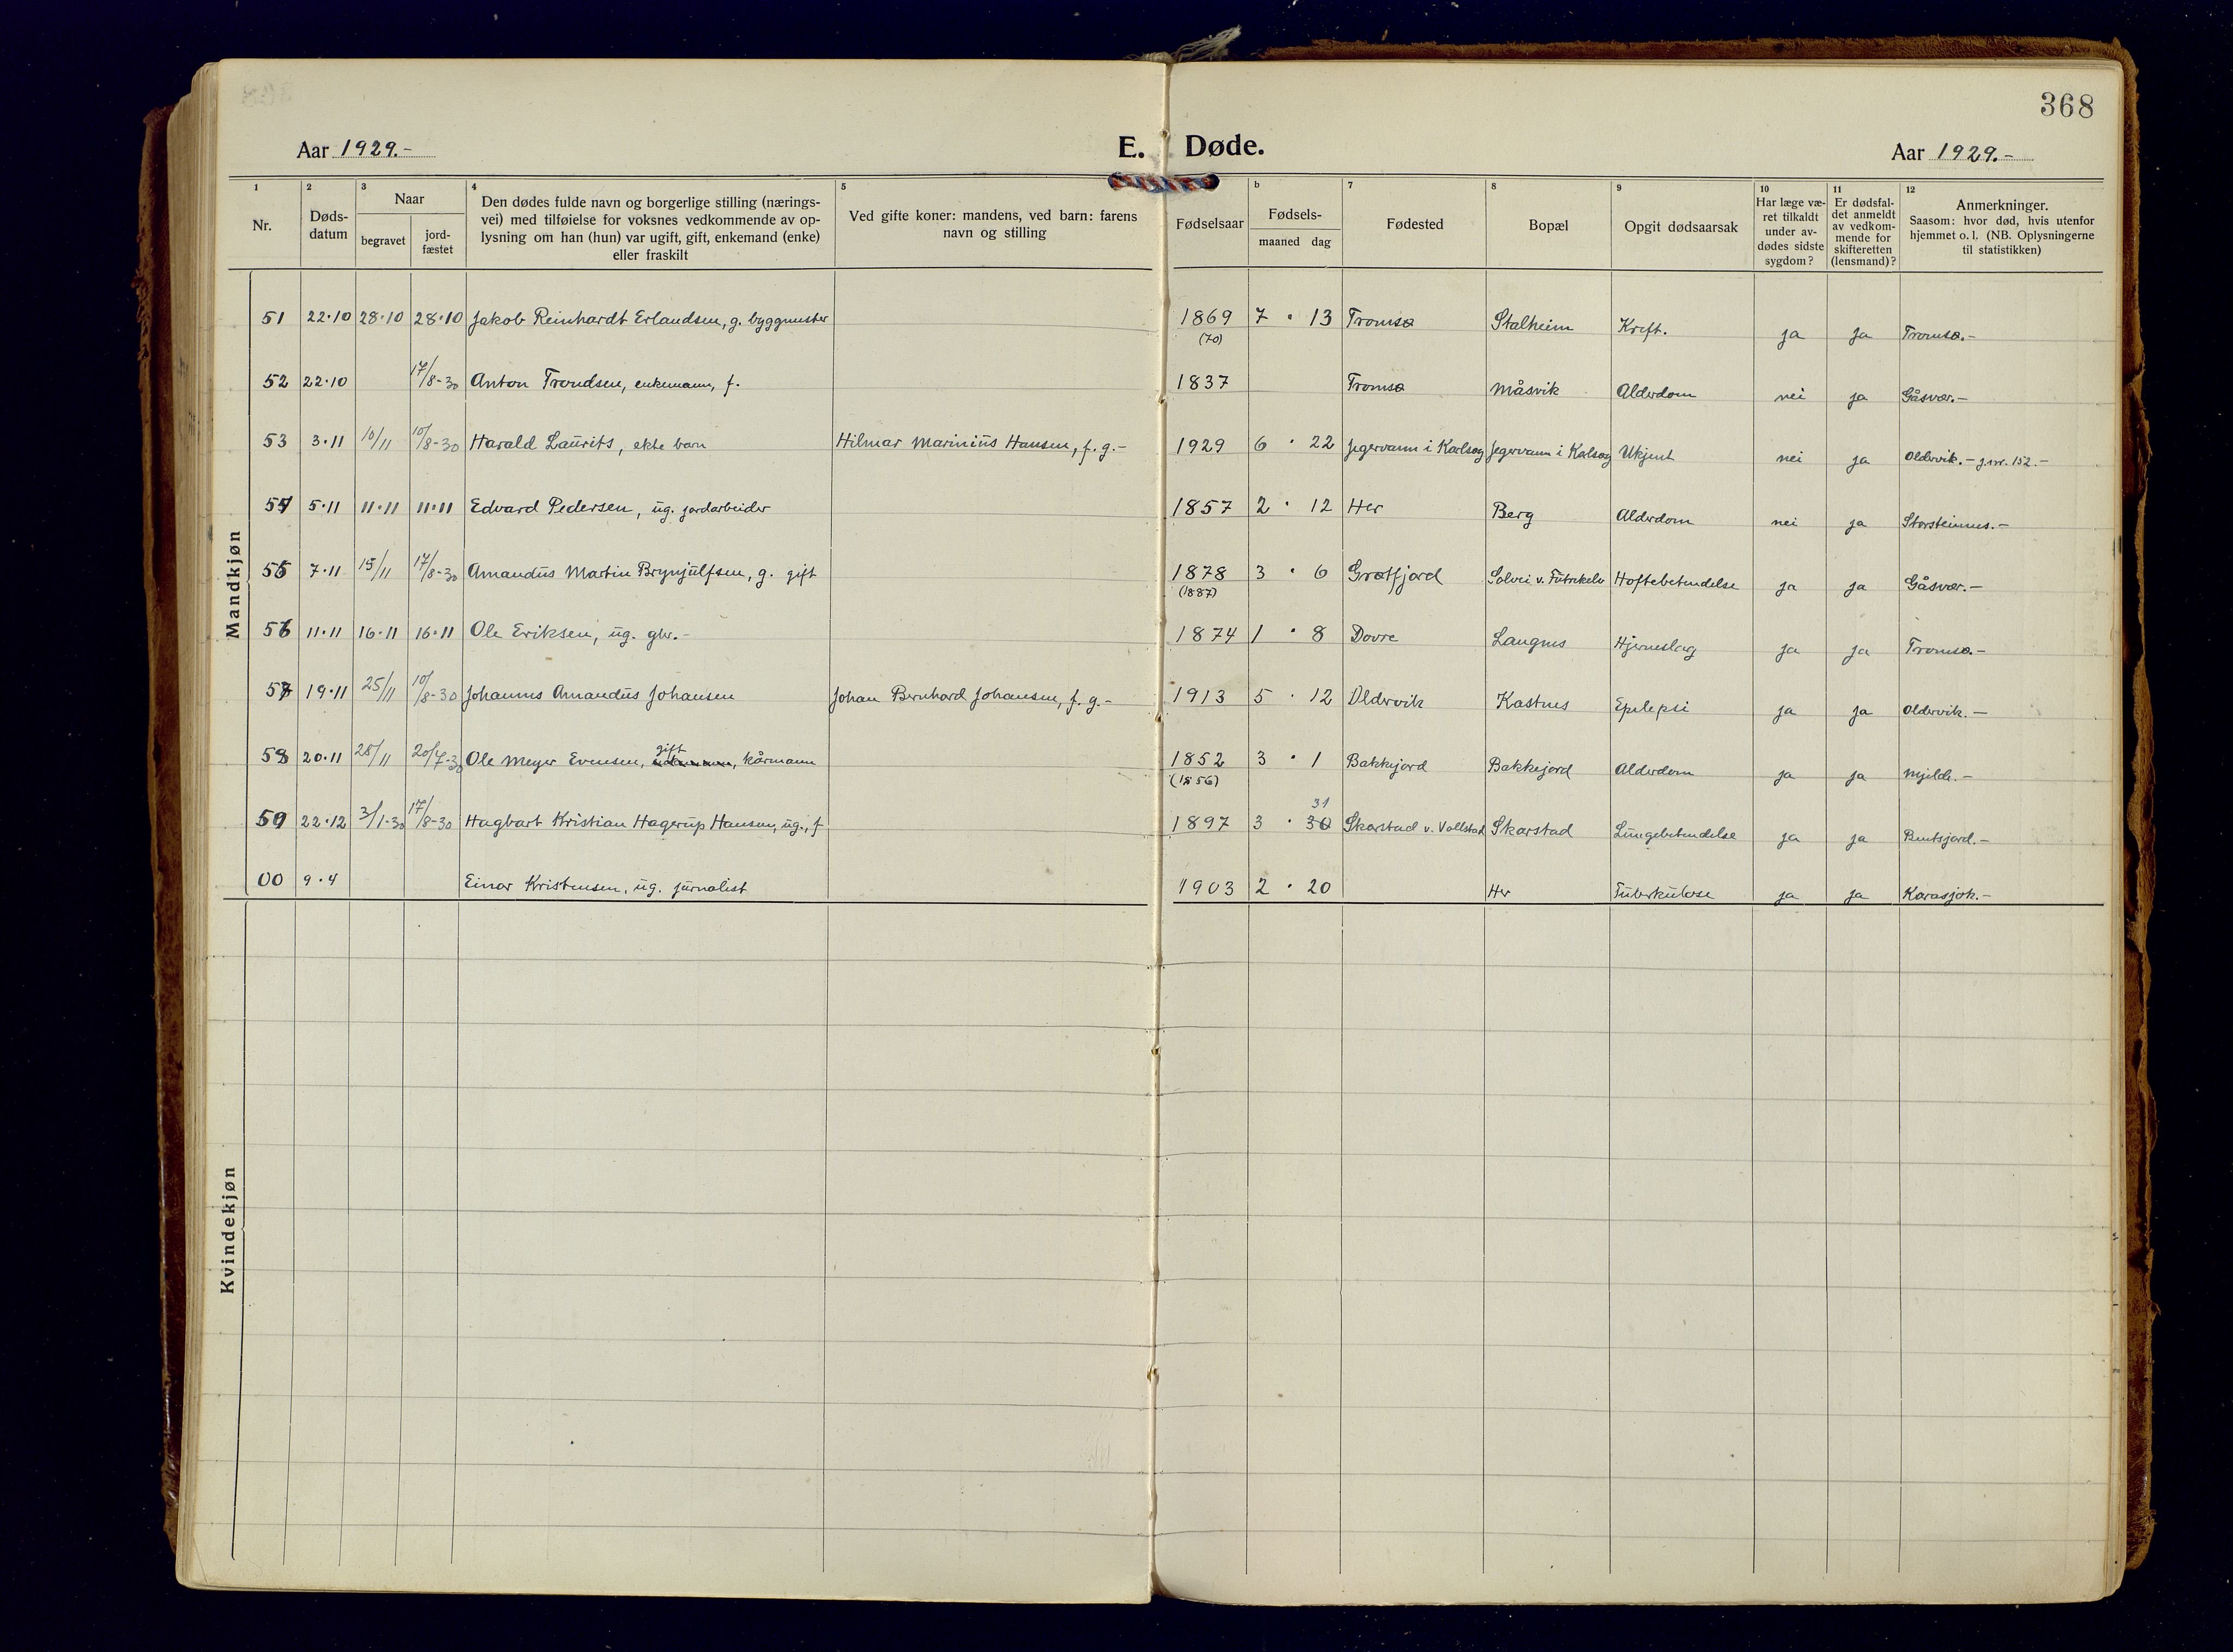 368
Aar 1929.-
E. Døde.
Aar 1929.-
1 2 3 4 5 b 7 8 9 10 11 12
Nr.
Døds-
datum
Naar
begravet
jord-
fæstet
Den dødes fulde navn og borgerlige stilling (nærings-
vei) med tilføielse for voksnes vedkommende av op-
lysning om han (hun) var ugift, gift, enkemand (enke)
eller fraskilt
Ved gifte koner: mandens, ved barn: farens
navn og stilling
Fødselsaar
Fødsels-
maaned dag
Fødested
Bopæl
Opgit dødsaarsak
Har læge væ-
ret tilkaldt
under av-
dødes sidste
sygdom?
Er dødsfal-
det anmeldt
av vedkom-
mende for
skifteretten
(lensmand)?
Anmerkninger.
Saasom: hvor død, hvis utenfor
hjemmet o. l. (NB. Oplysningerne
til statistikken)
Mandkjøn
51 22·10 28·10 28·10 Jakob Reinhardt Erlandsen, g. byggmester 1869 7 · 13 Tromsø Stalheim Kreft. ja ja Tromsø.-
(70)
52 22·10 17/8-30 Anton Trondsen, enkemann, f. 1837 Tromsø Måsvik Alderdom nei ja Gåsvær.-
53 3·11 10/11 10/8-30 Harald Laurits, ekte barn Hilmar Marinius Hansen, f. g.- 1929 6 · 22 Jegervann i Karlsøy Jegervann i Karlsøy Ukjent nei ja Oldervik.- j.nr. 152.-
54 5·11 11·11 11·11 Edvard Pedersen, ug. jordarbeider 1857 2 · 12 Her Berg Alderdom nei ja Storsteinnes.-
55 7·11 15/11 17/8-30 Amandus Martin Brynjulfsen, g. gift 1878 3 · 6 Grøtfjord Solvei v. Futrikelv Hoftebetendelse ja ja Gåsvær.-
(1887)
56 11·11 16·11 16·11 Ole Eriksen, ug. gbr.- 1874 1 · 8 Dovre Langnes Hjerneslag ja ja Tromsø.-
57 19·11 25/11 10/8-30 Johannes Amandus Johansen Johan Bernhard Johansen, f. g.- 1913 5 · 12 Oldervik Kastnes Epilepsi ja ja Oldervik.-
gift
58 20·11 28/11 20/7-30 Ole Meyer Evensen, enkemann, kårmann 1852 3 · 1 Bakkejord Bakkejord Alderdom ja ja Mjelde.-
(1856)
31
59 22·12 3/1-30 17/8-30 Hagbart Kristian Hagerup Hansen, ug., f 1897 3 · 30 Skarstad v. Vollstad Skarstad Lungebetendelse ja ja Bentsjord.-
00 9·4 Einar Kristensen, ug. jurnalist 1903 2 · 20 Her Tuberkulose ja ja Karasjok.-
Kvindekjøn